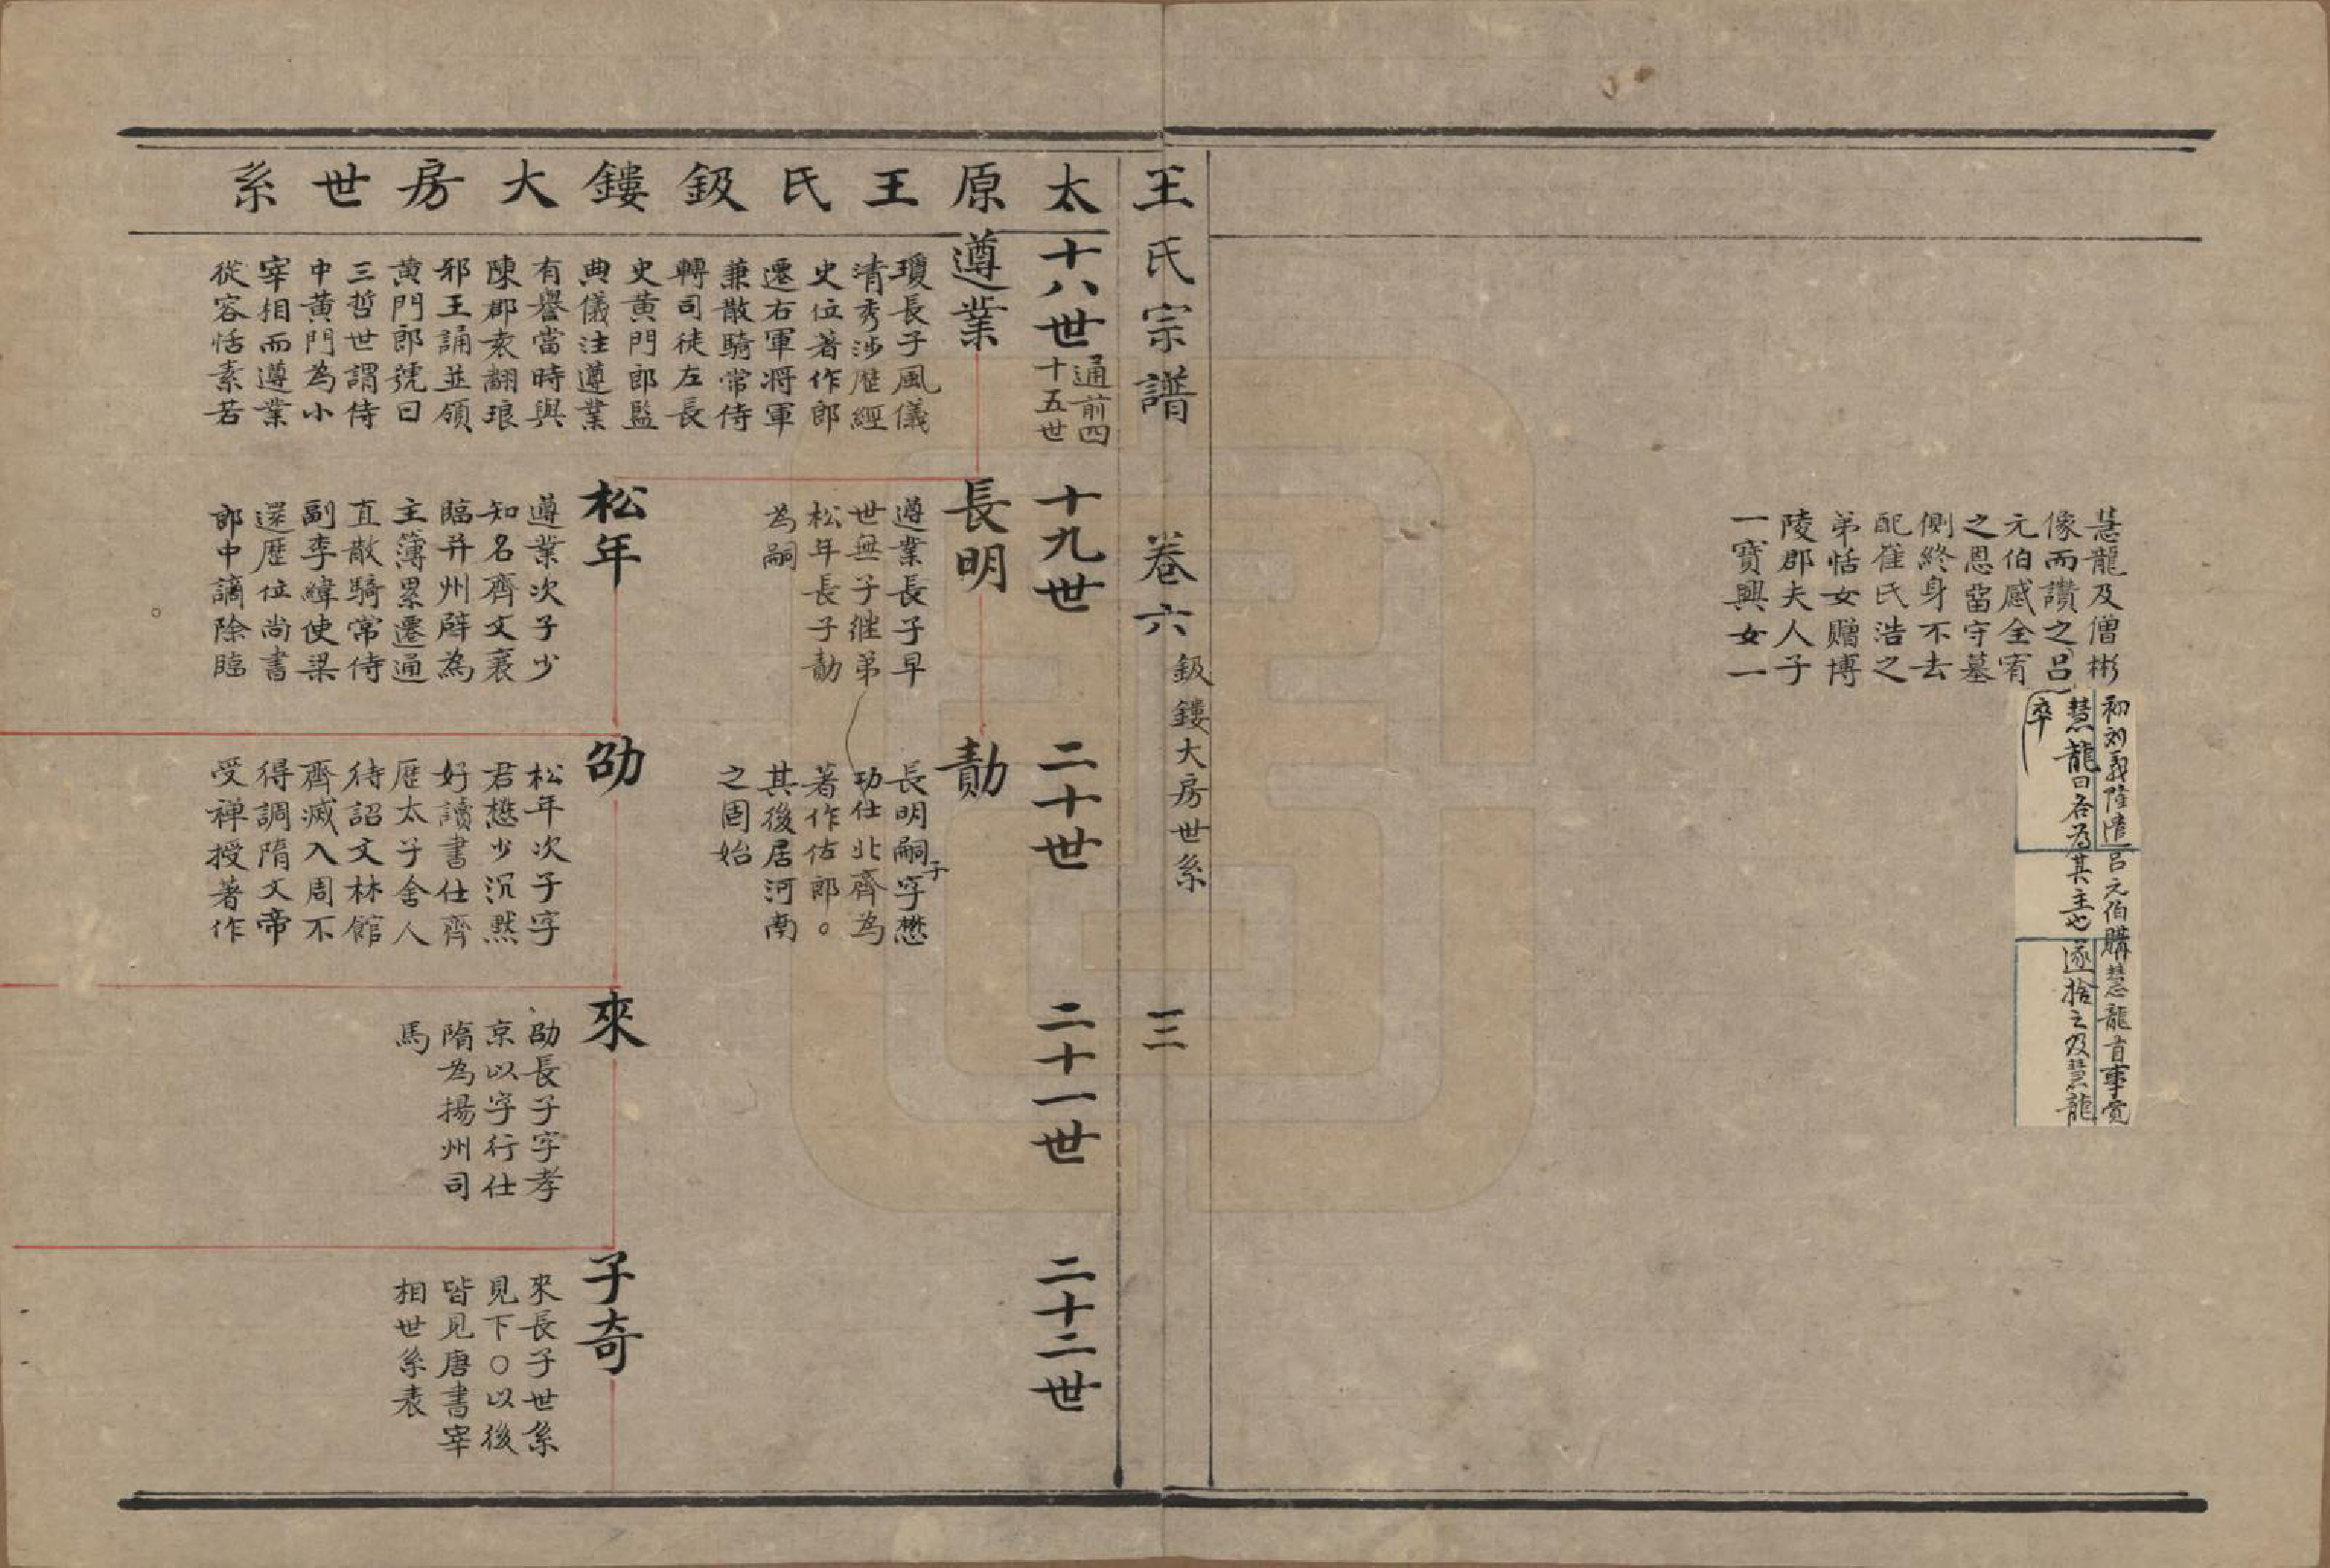 慧龍及僧彬
像而讚之呂
元伯感全宥
之恩留守墓
側終身不去
配崔氏浩之
弟恬女贈博
陵郡夫人子
一寶興女一
初刘義隆遣呂元伯購慧龍首事覚
慧龍曰各為其主也遂捨之及慧龍
卒
王氏宗譜 卷六 鈒鏤大房世系 三
太原王氏鈒鏤大房世系
十八世 通前四十五世
十九世
二十世
二十一世
二十二世
遵業
瓊長子風儀
清秀涉歷經
史位著作郎
遷右軍将軍
兼散騎常侍
轉司徒左長
史黃門郎監
典儀注遵業
有譽當時與
陳郡袁翻琅
邪王誦並領
黃門郎號曰
三哲世謂侍
中黃門為小
宰相而遵業
從容恬素若
長明
遵業長子早
世無子継弟
松年長子勣
為嗣
松年
遵業次子少
知名齊文襄
臨并州辟為
主簿累遷通
直散騎常侍
副李緯使梁
還歷位尚書
郎中謫除臨
勣
長明嗣子字懋
功仕北齊為
著作佐郎。
其後居河南
之固始
劭
松年次子字
君懋少沉默
好讀書仕齊
歷太子舍人
待詔文林館
齊滅入周不
得調隋文帝
受禅授著作
來
劭長子字孝
京以字行仕
隋為揚州司
馬
子奇
來長子世系
見下○以後
皆見唐書宰
相世系表